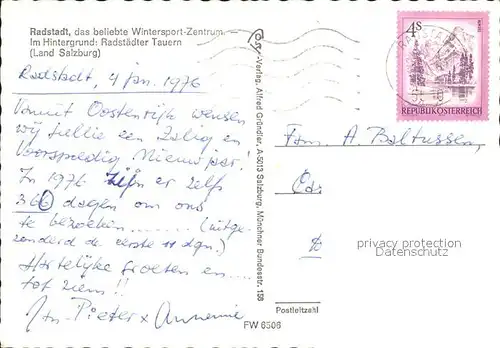 Radstadt, das beliebte Wintersport-Zentrum.
Im Hintergrund: Radstädter Tauern
(Land Salzburg)
Radstadt, 4 jan. 1976
Vanuit Oostenrijk wensen
wij jullie een Zalig en
Voorspoedig Nieuwjaar!
In 1976 zijn er zelfs
366 dagen om ons
te bezoeken......... (uitge-
zonderd de eerste 11 dgn.)
Hartelijke groeten en....
tot ziens!!
Pieter x Annemie
FW 6506
-Verlag, Alfred Gründler, A-5013 Salzburg, Münchner Bundesstr. 156
4S
REPUBLIK ÖSTERREICH
Fam. A. Baltussen,
privacy protection
Datenschutz
Postleitzahl